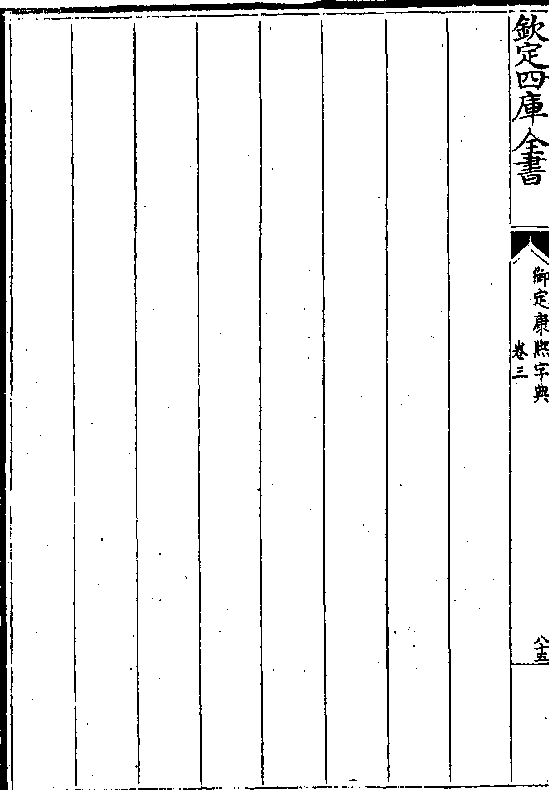 欽定四庫全書
御定康熙字典
卷三
八十五